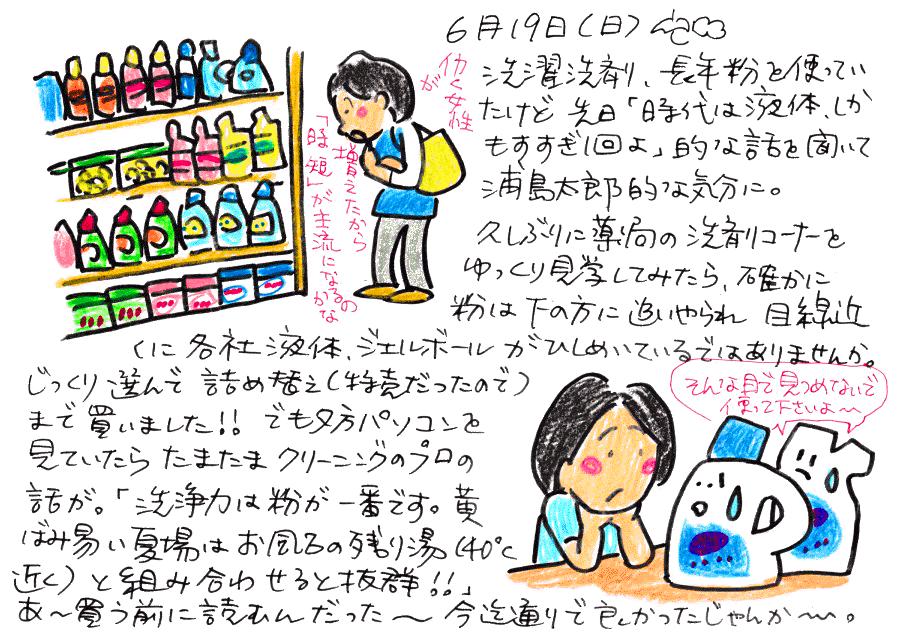 6月19日(日)
洗濯洗剤、長年粉を使ってい
たけど 先日「時代は液体、しか
もすすぎ1回よ」的な話を聞いて
浦島太郎的な気分に。
久しぶりに薬局の洗剤コーナーを
ゆっくり見学してみたら、確かに
粉は下の方に追いやられ 目線近
くに各社液体、ジェルボールがひしめいているではありませんか。
じっくり選んで 詰め替え(特売だったので)
まで買いました!! でも夕方パソコンを
見ていたら たまたまクリーニングのプロの
話が。「洗浄力は粉が一番です。黄
ばみ易い夏場はお風呂の残り湯(40℃
近く)と組み合わせると抜群!!」
あ〜買う前に読むんだった〜 今迄通りで良かったじゃんか〜。
働く女性が
増えたから
「時短」が主流になるのかな
そんな目で見つめてないで
使って下さいよ〜